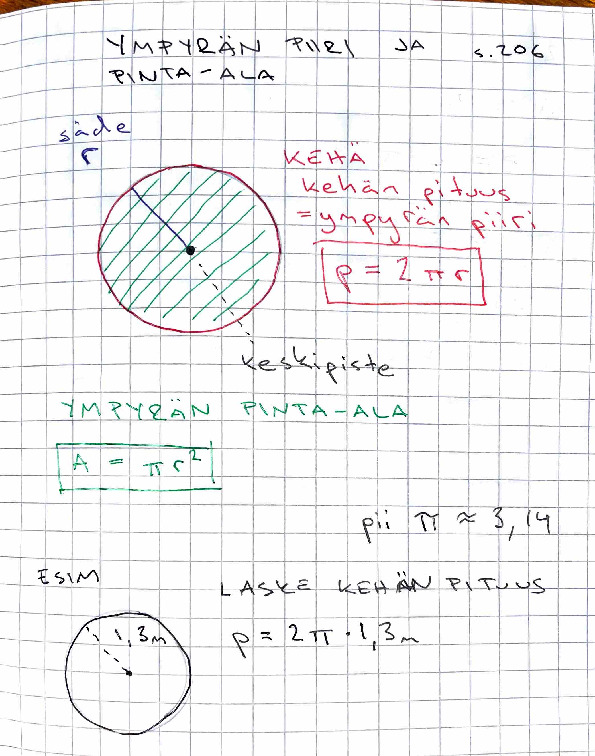 YMPYRÄN PIIRI JA s. 206
PINTA-ALA
säde
r
KEHÄ
kehän pituus
= ympyrän piiri
p = 2 π r
keskipiste
YMPYRÄN PINTA-ALA
A = π r²
pii π ≈ 3,14
ESIM LASKE KEHÄN PITUUS
1,3m p = 2π · 1,3m